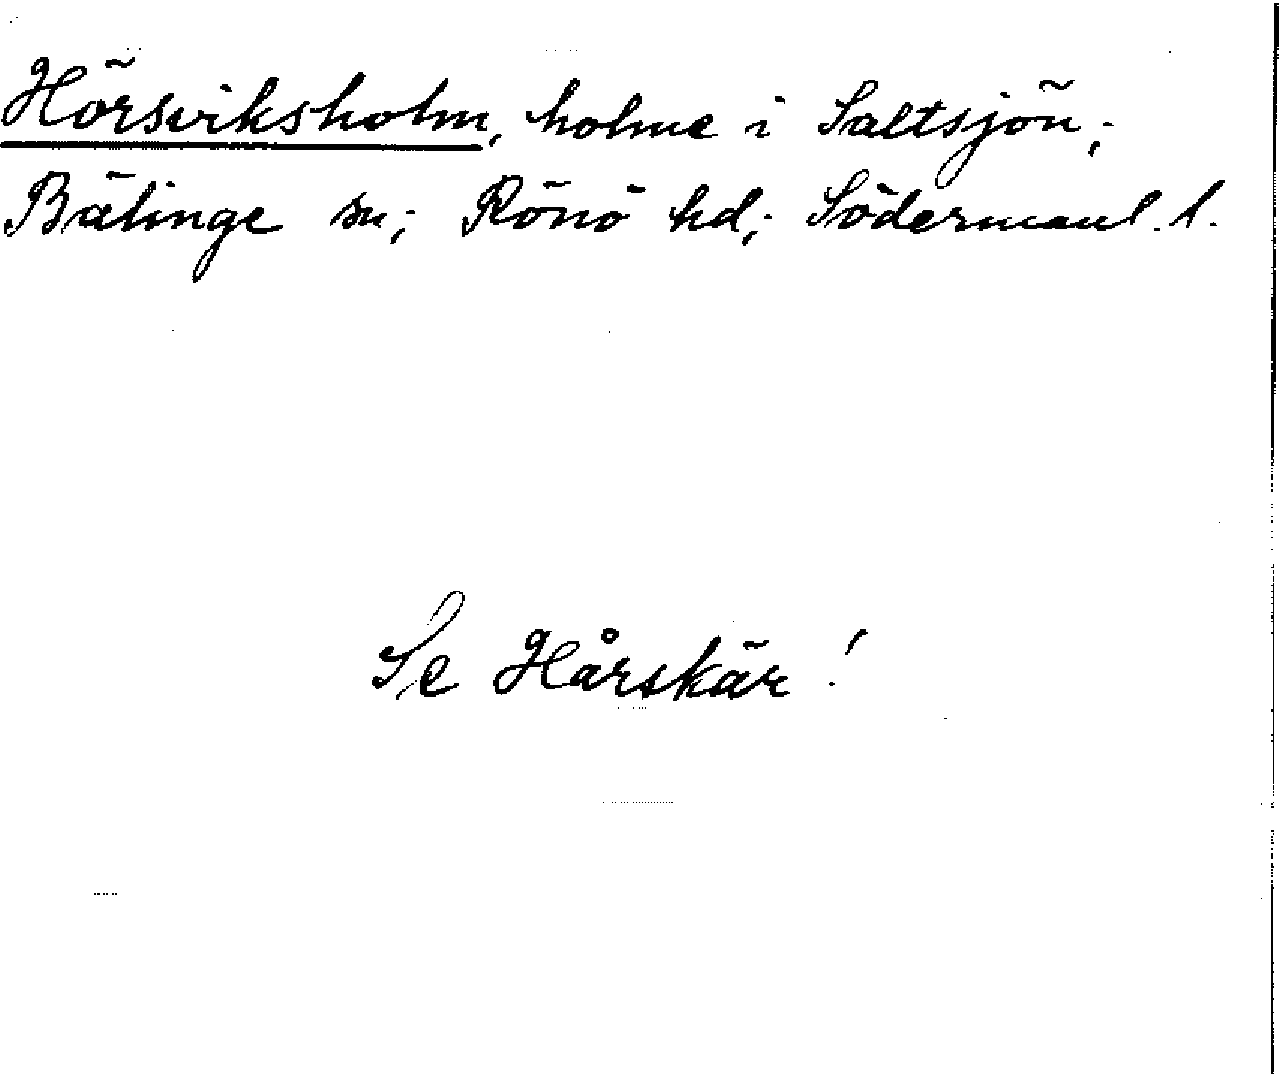 Hörsviksholm, holme i Saltsjön;
Bälinge sn; Rönö hd; Södermanl. l.
Se Hårskär!